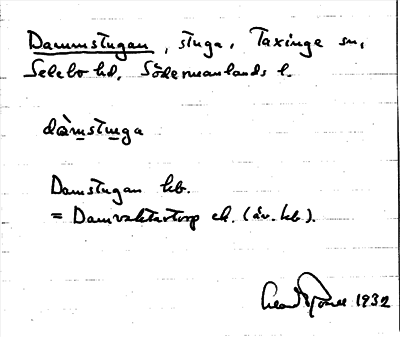 Dammstugan, stuga, Taxinge sn,
Selebo hd, Södermanlands l.
dàmstuga
Damstugan kb.
= Damvaktartorp ek. (äv. kb).
1932